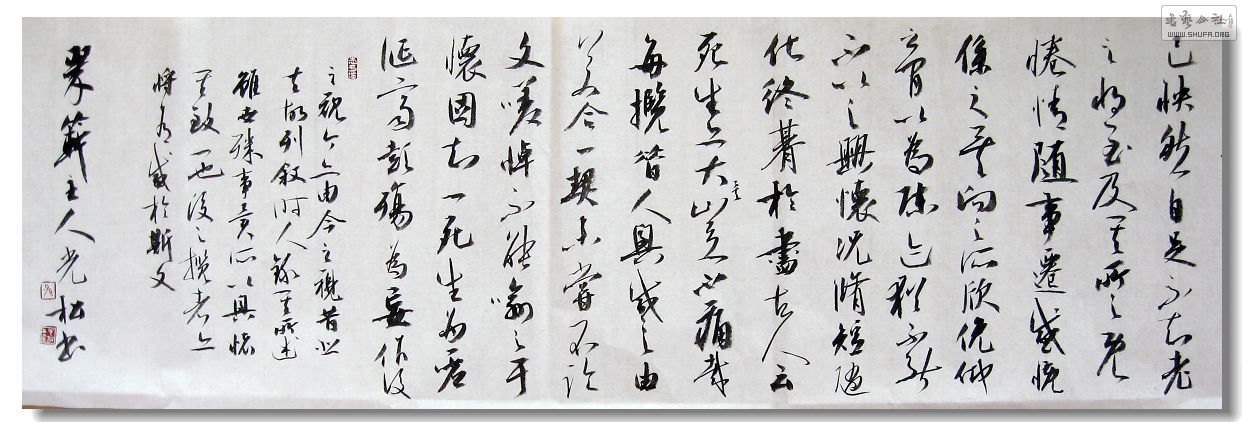 書藝公社
WWW.SHUFA.ORG
己快然自足不知老
之將至及其所之既
惓情隨事遷感慨
係之矣向之所欣俛仰
之間以為陳迹猶不能
不以之興懷況脩短隨
化終朞於盡古人云
死生亦大矣豈不痛哉
每攬昔人興感之由
若合一契未嘗不臨
文嗟悼不能喻之於
懷固知一死生為虛
誕齊彭殤為妄作後
之視今亦由今之視昔悲
夫故列敘時人錄其所述
雖世殊事異所以興懷
其致一也後之攬者亦
將有感於斯文
主人光松書